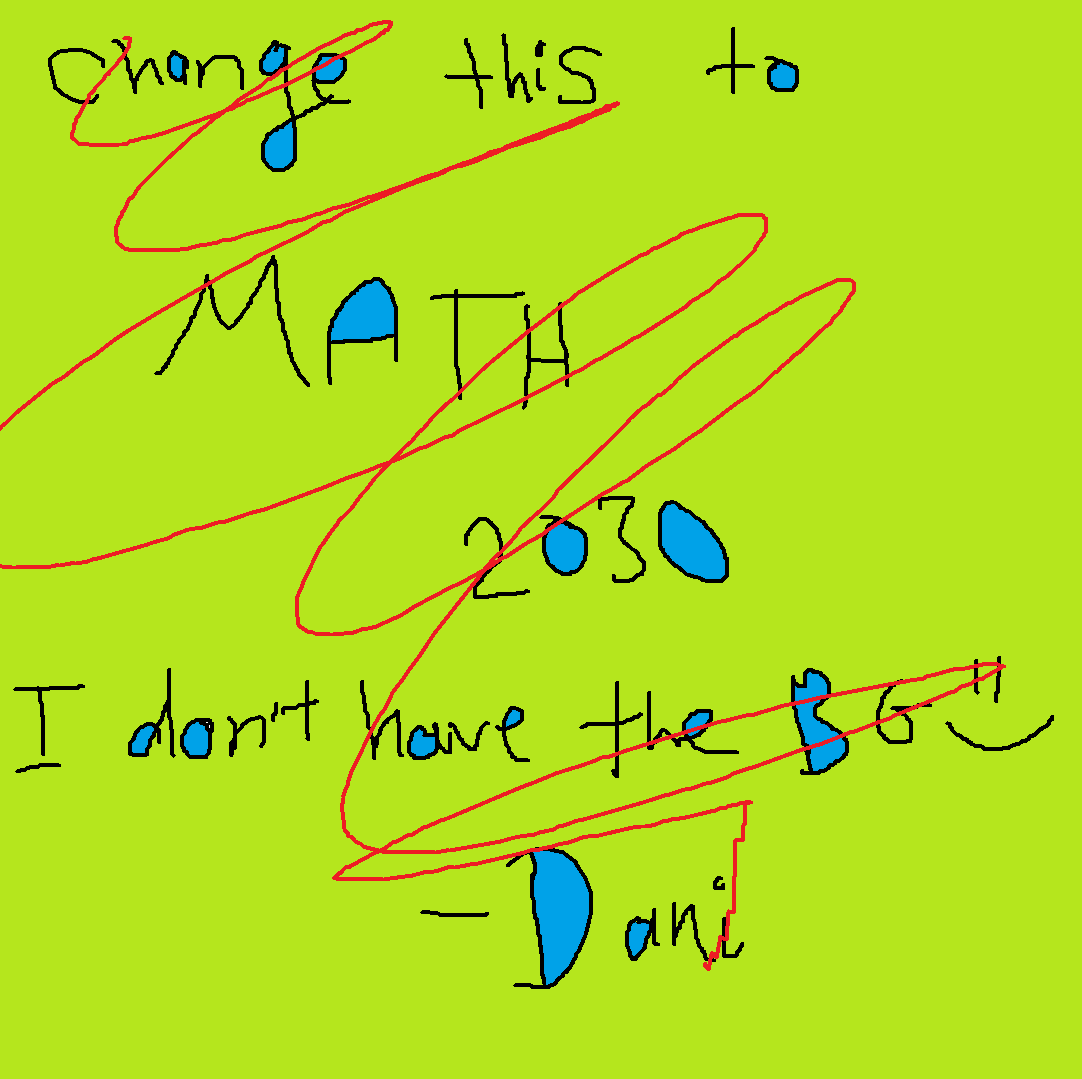 change this to
MATH
2030
I don't have the BG
- Dani